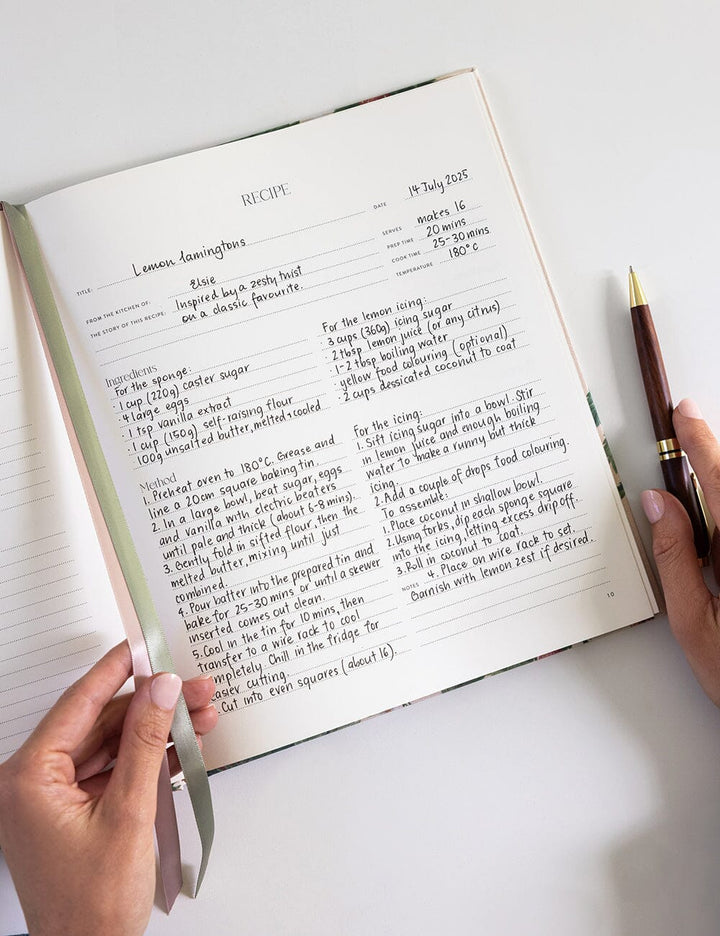 RECIPE
DATE 14 July 2025
TITLE: Lemon lamingtons
SERVES makes 16
PREP TIME 20 mins
COOK TIME 25-30 mins
TEMPERATURE 180°C
FROM THE KITCHEN OF: Elsie
THE STORY OF THIS RECIPE: Inspired by a zesty twist
on a classic favourite.
Ingredients
For the sponge:
· 1 cup (220g) caster sugar
· 4 large eggs
· 1 tsp vanilla extract
· 1 cup (150g) self-raising flour
· 100g unsalted butter, melted & cooled
For the lemon icing:
· 3 cups (360g) icing sugar
· 2 tbsp lemon juice (or any citrus)
· 1-2 tbsp boiling water
· yellow food colouring (optional)
· 2 cups dessicated coconut to coat
Method
1. Preheat oven to 180°C. Grease and
line a 20cm square baking tin.
2. In a large bowl, beat sugar, eggs
and vanilla with electric beaters
until pale and thick (about 6-8 mins).
3. Gently fold in sifted flour, then the
melted butter, mixing until just
combined.
4. Pour batter into the prepared tin and
bake for 25-30 mins or until a skewer
inserted comes out clean.
5. Cool in the tin for 10 mins, then
transfer to a wire rack to cool
mpletely. Chill in the fridge for
easier cutting.
. Cut into even squares (about 16).
For the icing:
1. Sift icing sugar into a bowl. Stir
in lemon juice and enough boiling
water to make a runny but thick
icing.
2. Add a couple of drops food colouring.
To assemble:
1. Place coconut in shallow bowl.
2. Using forks, dip each sponge square
into the icing, letting excess drip off.
3. Roll in coconut to coat.
NOTES 4. Place on wire rack to set.
Garnish with lemon zest if desired.
10